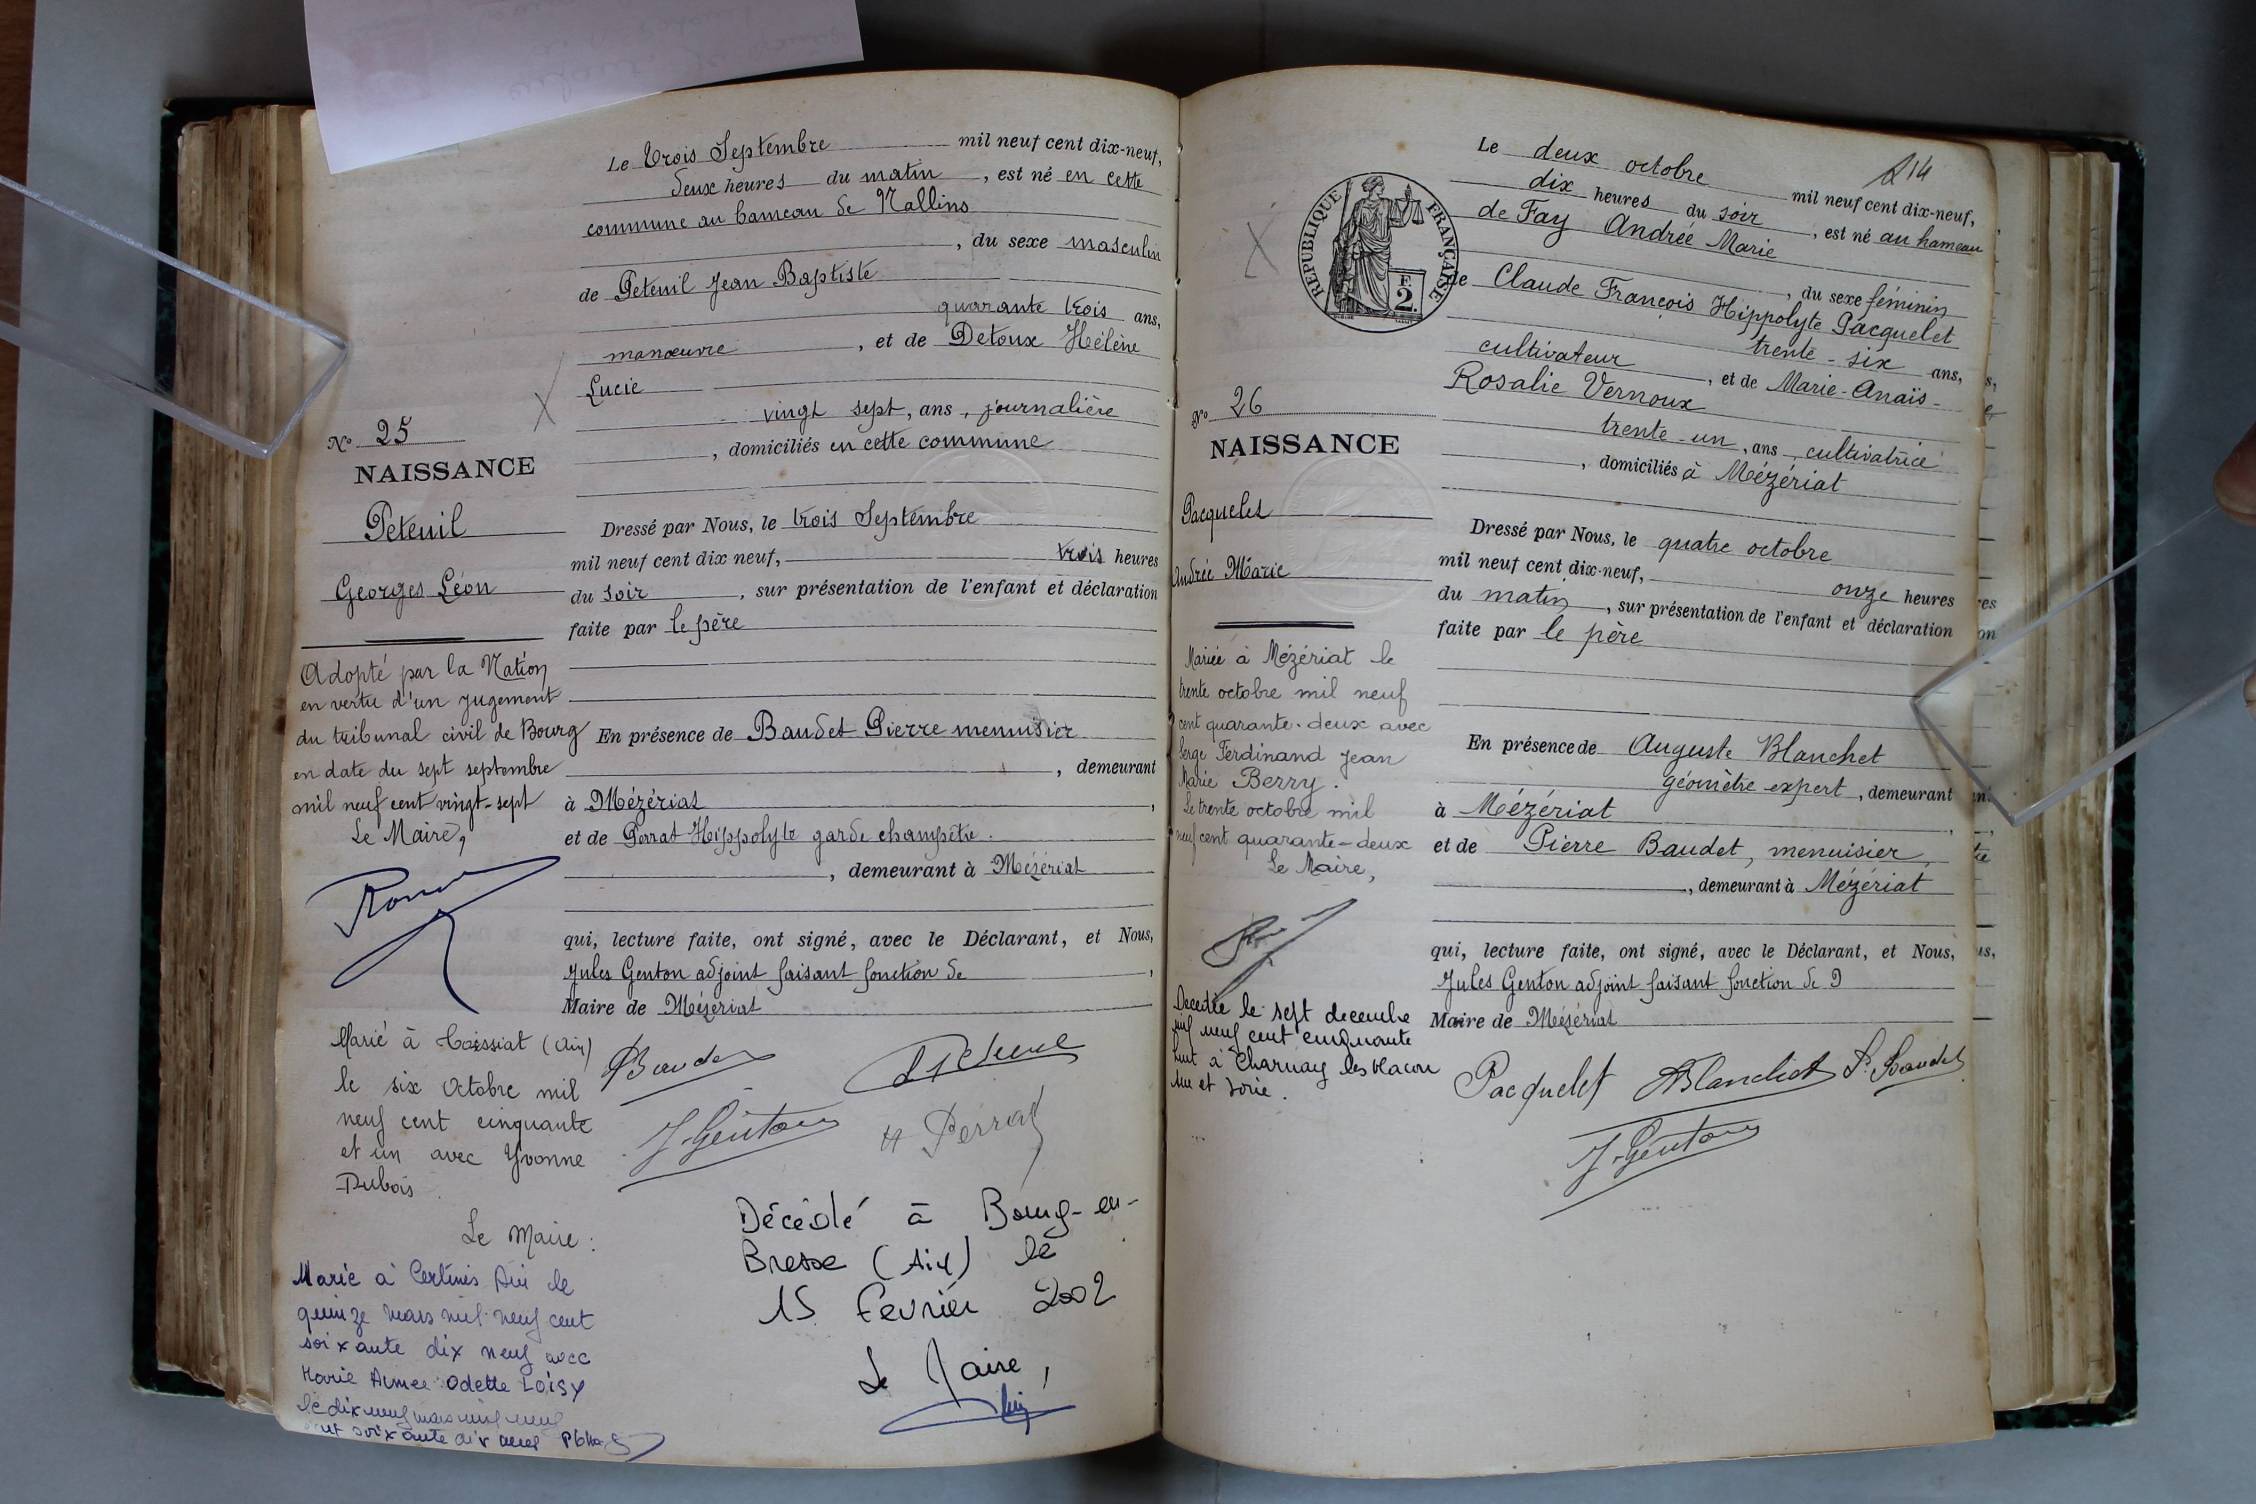 Le Trois Septembre mil neuf cent dix-neuf,
deux heures du matin, est né en cette
commune au hameau de Nallins
, du sexe masculin
de Peteuil Jean Baptiste
quarante trois ans,
manœuvre, et de Detoux Hélène
Lucie
vingt sept, ans, journalière
, domiciliés en cette commune
N° 25
NAISSANCE
Peteuil
Georges Léon
Dressé par Nous, le trois Septembre
mil neuf cent dix neuf, trois heures
du soir, sur présentation de l'enfant et déclaration
faite par le père
En présence de Baudet Pierre menuisier
, demeurant
à Mézériat,
et de Perrat Hippolyte garde champêtre.
, demeurant à Mézériat
qui, lecture faite, ont signé, avec le Déclarant, et Nous,
Jules Genton adjoint faisant fonction de,
Maire de Mézériat
Baudet
J. Genton
H Perrat
Adopté par la Nation
en vertu d'un jugement
du tribunal civil de Bourg
en date du sept septembre
mil neuf cent vingt-sept
Le Maire,
Marié à Foissiat (Ain)
le six Octobre mil
neuf cent cinquante
et un avec Yvonne
Dubois.
Le Maire :
Marié à Certines Ain le
quinze mars mil neuf cent
soixante dix neuf avec
Marie Aimée Odette LOISY
le dix neuf mars mil neuf
cent soixante dix neuf
Décédé à Bourg-en-
Bresse (Ain) le
15 Février 2002
Le Maire,
214
Le deux octobre mil neuf cent dix-neuf,
dix heures du soir, est né au hameau
de Fay Andrée Marie
, du sexe féminin
de Claude François Hippolyte Pacquelet
trente-six ans,
cultivateur, et de Marie-Anaïs-
Rosalie Vernoux
trente-un, ans, cultivatrice
, domiciliés à Mézériat
RÉPUBLIQUE FRANÇAISE
F
2.
N° 26
NAISSANCE
Pacquelet
Andrée Marie
Dressé par Nous, le quatre octobre
mil neuf cent dix-neuf, onze heures
du matin, sur présentation de l'enfant et déclaration
faite par le père
En présence de Auguste Blanchet
géomètre expert, demeurant
à Mézériat,
et de Pierre Baudet, menuisier,
, demeurant à Mézériat
qui, lecture faite, ont signé, avec le Déclarant, et Nous,
Jules Genton adjoint faisant fonction de
Maire de Mézériat
Pacquelet ABlanchet P. Baudet
J. Genton
Mariée à Mézériat le
trente octobre mil neuf
cent quarante-deux avec
Serge Ferdinand Jean
Marie Berry.
Le trente octobre mil
neuf cent quarante-deux
Le Maire,
Decedée le sept decembre
mil neuf cent cinquante
huit à Charnay les Macon